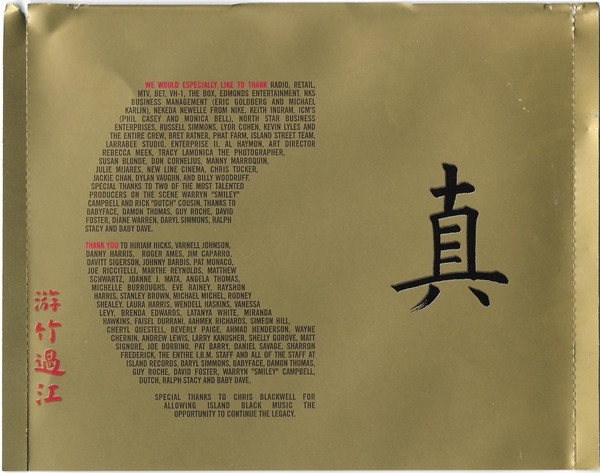 WE WOULD ESPECIALLY LIKE TO THANK RADIO, RETAIL,
MTV, BET, VH-1, THE BOX, EDMONDS ENTERTAINMENT, NKS
BUSINESS MANAGEMENT (ERIC GOLDBERG AND MICHAEL
KARLIN), NEKEDA NEWELLE FROM NIKE, KEITH INGRAM, ICM'S
(PHIL CASEY AND MONICA BELL), NORTH STAR BUSINESS
ENTERPRISES, RUSSELL SIMMONS, LYOR COHEN, KEVIN LYLES AND
THE ENTIRE CREW, BRET RATNER, PHAT FARM, ISLAND STREET TEAM,
LARRABEE STUDIO, ENTERPRISE II, AL HAYMON, ART DIRECTOR
REBECCA MEEK, TRACY LAMONICA THE PHOTOGRAPHER,
SUSAN BLONDE, DON CORNELIUS, MANNY MARROQUIN,
JULIE MIJARES, NEW LINE CINEMA, CHRIS TUCKER,
JACKIE CHAN, DYLAN VAUGHN, AND BILLY WOODRUFF.
SPECIAL THANKS TO TWO OF THE MOST TALENTED
PRODUCERS ON THE SCENE WARRYN "SMILEY"
CAMPBELL AND RICK "DUTCH" COUSIN. THANKS TO
BABYFACE, DAMON THOMAS, GUY ROCHE, DAVID
FOSTER, DIANE WARREN, DARYL SIMMONS, RALPH
STACY AND BABY DAVE.
THANK YOU TO HIRIAM HICKS, VARNELL JOHNSON,
DANNY HARRIS, ROGER AMES, JIM CAPARRO,
DAVITT SIGERSON, JOHNNY BARBIS, PAT MONACO,
JOE RICCITELLI, MARTHE REYNOLDS, MATTHEW
SCHWARTZ, JOANNE J. MATA, ANGELA THOMAS,
MICHELLE BURROUGHS, EVE RAINEY, RAYSHON
HARRIS, STANLEY BROWN, MICHAEL MICHEL, RODNEY
SHEALEY, LAURA HARRIS, WENDELL HASKINS, VANESSA
LEVY, BRENDA EDWARDS, LATANYA WHITE, MIRANDA
HAWKINS, FAISEL DURRANI, AAHMEK RICHARDS, SIMEON HILL,
CHERYL QUESTELL, BEVERLY PAIGE, AHMAD HENDERSON, WAYNE
CHERNIN, ANDREW LEWIS, LARRY KANUSHER, SHELLY GOROVE, MATT
SIGNORE, JOE BORRINO, PAT BARRY, DANIEL SAVAGE, SHARRON
FREDERICK, THE ENTIRE I.B.M. STAFF AND ALL OF THE STAFF AT
ISLAND RECORDS, DARYL SIMMONS, BABYFACE, DAMON THOMAS,
GUY ROCHE, DAVID FOSTER, WARRYN "SMILEY" CAMPBELL,
DUTCH, RALPH STACY AND BABY DAVE.
SPECIAL THANKS TO CHRIS BLACKWELL FOR
ALLOWING ISLAND BLACK MUSIC THE
OPPORTUNITY TO CONTINUE THE LEGACY.
游竹過江
真